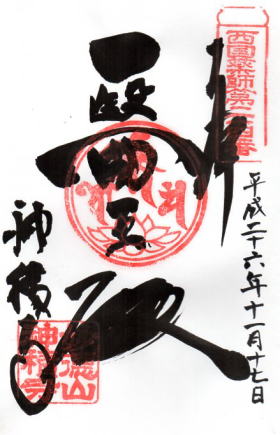 奉拝
西國薬師第二十六番
平成二十六年十一月十七日
醫王殿
神積寺
妙徳山
神積寺